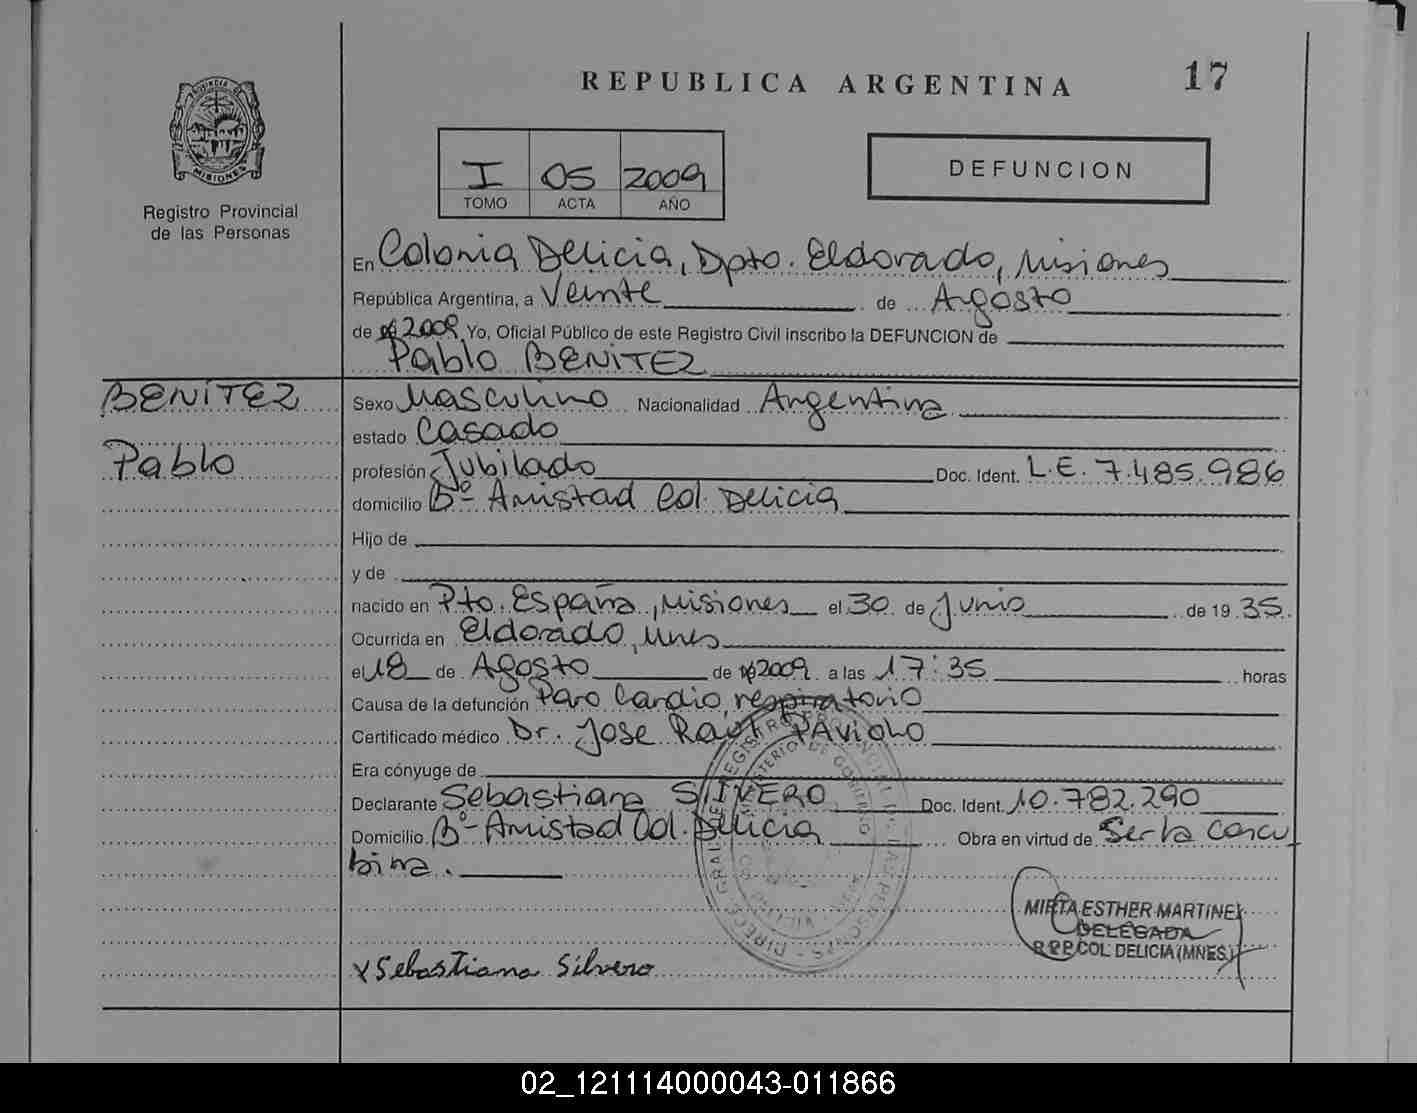 REPUBLICA ARGENTINA
17
PROVINCIA DE MISIONES
Registro Provincial
de las Personas
I 05 2009
TOMO ACTA AÑO
DEFUNCION
En Colonia Delicia, Dpto. Eldorado, Misiones
República Argentina, a Veinte de Agosto
de 2009 Yo, Oficial Público de este Registro Civil inscribo la DEFUNCION de
Pablo BENITEZ
BENÍTEZ
Pablo
Sexo Masculino Nacionalidad Argentina
estado Casado
profesión Jubilado Doc. Ident. L.E. 7.485.986
domicilio Bº- Amistad Col. Delicia
Hijo de
y de
nacido en Pto. España, Misiones el 30 de Junio de 19 35
Ocurrida en Eldorado, Mnes
el 18 de Agosto de 2009 a las 17:35 horas
Causa de la defunción Paro Cardio respiratorio
Certificado médico Dr. Jose Raul PAVIOLO
Era cónyuge de
Declarante Sebastiana SILVERO Doc. Ident. 10.782.290
Domicilio Bº- Amistad Col. Delicia Obra en virtud de Ser la Concu
bina.
MIRTA ESTHER MARTINEZ
DELEGADA
R.P.P. COL. DELICIA (MNES.)
x Sebastiana Silvero
02_121114000043-011866